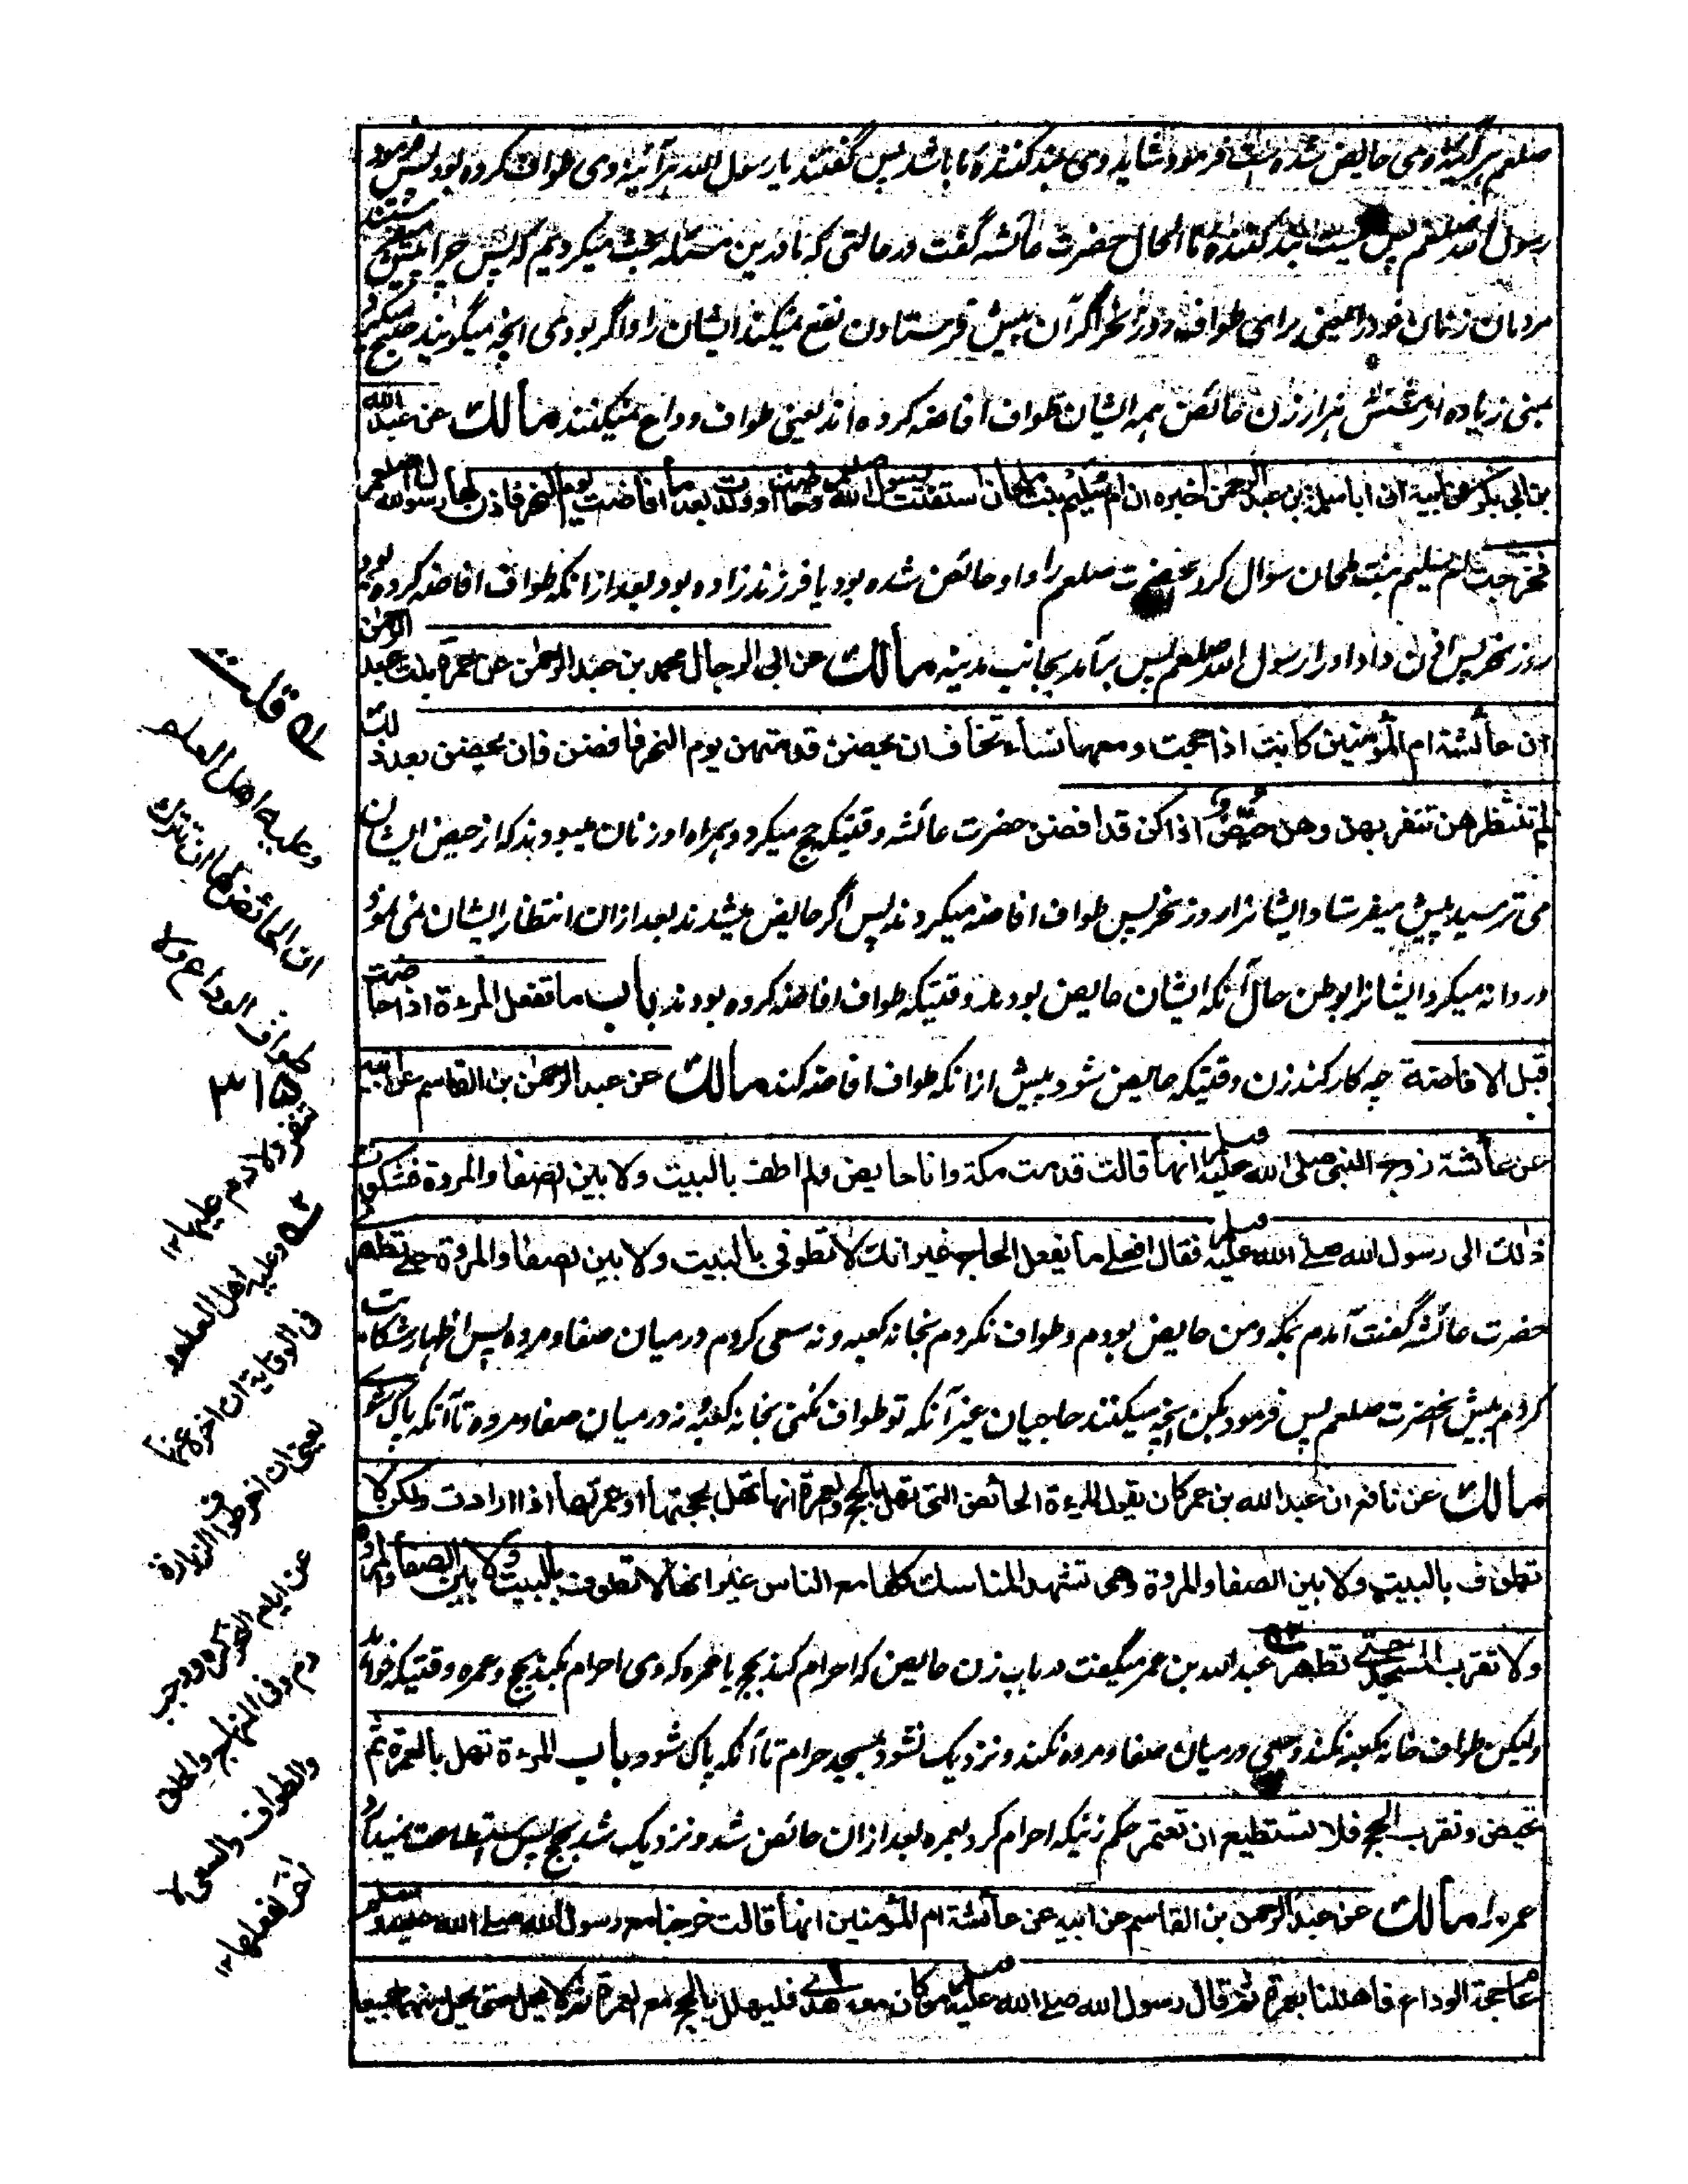 صلعم هر آئینه وی حایض شده است فرمود شاید وی بند کننده ما باشد پس گفتند یا رسول الله هر آئینه وی طواف کرده بود پس فرمود
رسول الله صلعم پس نیست بند کننده ما الحال حضرت عائشه گفت در حالتی که ما درین مسئله بحث میکردیم که پس چرا پیش میفرستند
مردمان زنان خود را یعنی برای طواف روز نحر اگر آن پیش فرستادن نفع نمیکند ایشان را و اگر بودی آنچه میگویند صبح میکرد
بمنی زیاده از شش هزار زن حائض همه ایشان طواف افاضه کرده اند یعنی طواف وداع نمیکنند مالك عن عبد الله
بن ابی بکر عن ابیه ان ابا سلمة بن عبد الرحمن اخبره ان ام سلیم بنت ملحان استفتت رسول الله صلعم وحاضت او ولدت بعد ما افاضت یوم النحر فاذن لها رسول الله صلعم
فخرجت ام سلیم بنت ملحان سوال کرد آنحضرت صلعم را و او حائض شده بود یا فرزند زاده بود بعد از انکه طواف افاضه کرده بود
روز نحر پس اذن داد او را رسول الله صلعم پس برآمد بجانب مدینه مالك عن ابی الرجال محمد بن عبد الرحمن عن عمرة بنت عبد الرحمن
ان عائشة ام المؤمنین کانت اذا حجت ومعها نساء تخاف ان یحضن قدمتهن یوم النحر فافضن فان یحضن بعد ذلك
لم تنتظرهن تنفر بهن وهن حُیَّضٌ اذا کن قد افضن حضرت عائشه وقتیکه حج میکرد و همراه او زنان میبودند که از حیض ایشان
می ترسید پیش میفرستاد ایشانرا روز نحر پس طواف افاضه میکردند پس اگر حایض میشدند بعد ازان انتظار ایشان نمی نمود
و روانه میکرد ایشانرا بوطن حال آنکه ایشان حایض بودند وقتیکه طواف افاضه کرده بودند باب ما تفعل المرءة اذا حاضت
قبل الافاضة چه کار کند زن وقتیکه حایض شود پیش ازانکه طواف افاضه کند مالك عن عبد الرحمن بن القاسم عن ابیه
عن عائشة زوج النبی صلی الله علیه وسلم انها قالت قدمت مکة وانا حایض ولم اطف بالبیت ولا بین الصفا والمروة فشکوت
ذلك الی رسول الله صلی الله علیه وسلم فقال افعلی ما یفعل الحاج غیر انك لا تطوفی بالبیت ولا بین الصفا والمروة حتی تطهر
حضرت عائشه گفت آمدم بمکه و من حایض بودم و طواف نکردم بخانه کعبه و نه سعی کردم درمیان صفا و مروه پس اظهار شکایت
کردم پیش آنحضرت صلعم پس فرمود بکن آنچه میکنند حاجیان غیر آنکه تو طواف نکنی بخانه کعبه نه درمیان صفا و مروه تا آنکه پاک شوی
مالك عن نافع ان عبد الله بن عمر کان یقول المرءة الحائض التی تهل بالحج والعمرة انها تهل بحجتها او عمرتها اذا ارادت ولکن لا
تطوف بالبیت ولا بین الصفا والمروة وهی تشهد المناسك کلها مع الناس غیر انها لا تطوف بالبیت ولا بین الصفا والمروة
ولا تقرب المسجد حتی تطهر عبد الله بن عمر میگفت در باب زن حایض که احرام کند بحج یا عمره که وی احرام بکند بحج و عمره وقتیکه خواهد
ولیکن طواف خانه کعبه نکند و سعی درمیان صفا و مروه نکند و نزدیک نشود بمسجد حرام تا آنکه پاک شود باب المرءة تهل بالعمرة ثم
تحیض وتقرب الحج فلا تستطیع ان تعتمر حکم زنیکه احرام کرد بعمره بعد ازان حائض شد و نزدیک شد بحج پس استطاعت نمیدارد
عمره را مالك عن عبد الرحمن بن القاسم عن ابیه عن عائشة ام المؤمنین انها قالت خرجنا مع رسول الله صلی الله علیه وسلم
عام حجة الوداع فاهللنا بعمرة ثم قال رسول الله صلی الله علیه وسلم من کان معه هدی فلیهلل بالحج مع العمرة ثم لا یحل حتی یحل منهما جمیعا
له قلت
وعلیه اهل العلم
ان الحائض لها ان تترك
طواف الوداع ولا
۳۱۵
تنفر ولا دم علیها ۱۲
وعلیه اهل العلم
فی الوقایة ان اخره عنها
یعنی ان اخر طواف الزیارة
عن ایام النحر کره ووجب
دم وفی المنهاج والحلق
والطواف والسعی لا
آخر لفعلها ۱۲